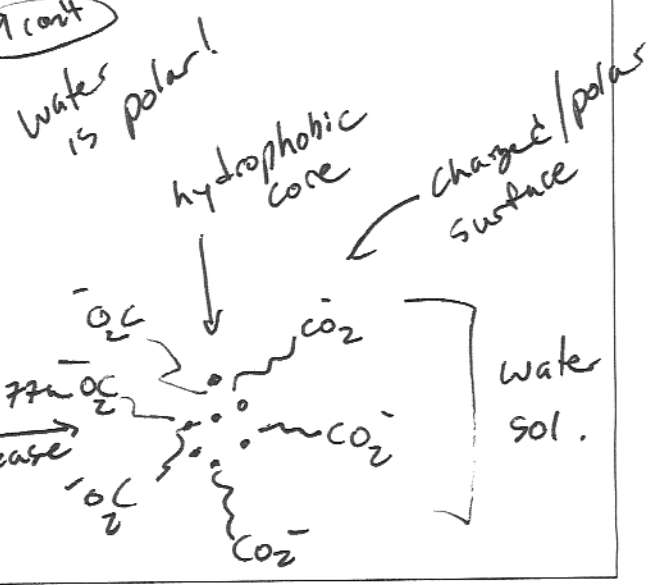 cont
water
is polar!
hydrophobic
core
charged/polar
surface
⁻O₂C
CO₂⁻
⁻O₂C
CO₂⁻
⁻O₂C
CO₂⁻
water
sol.